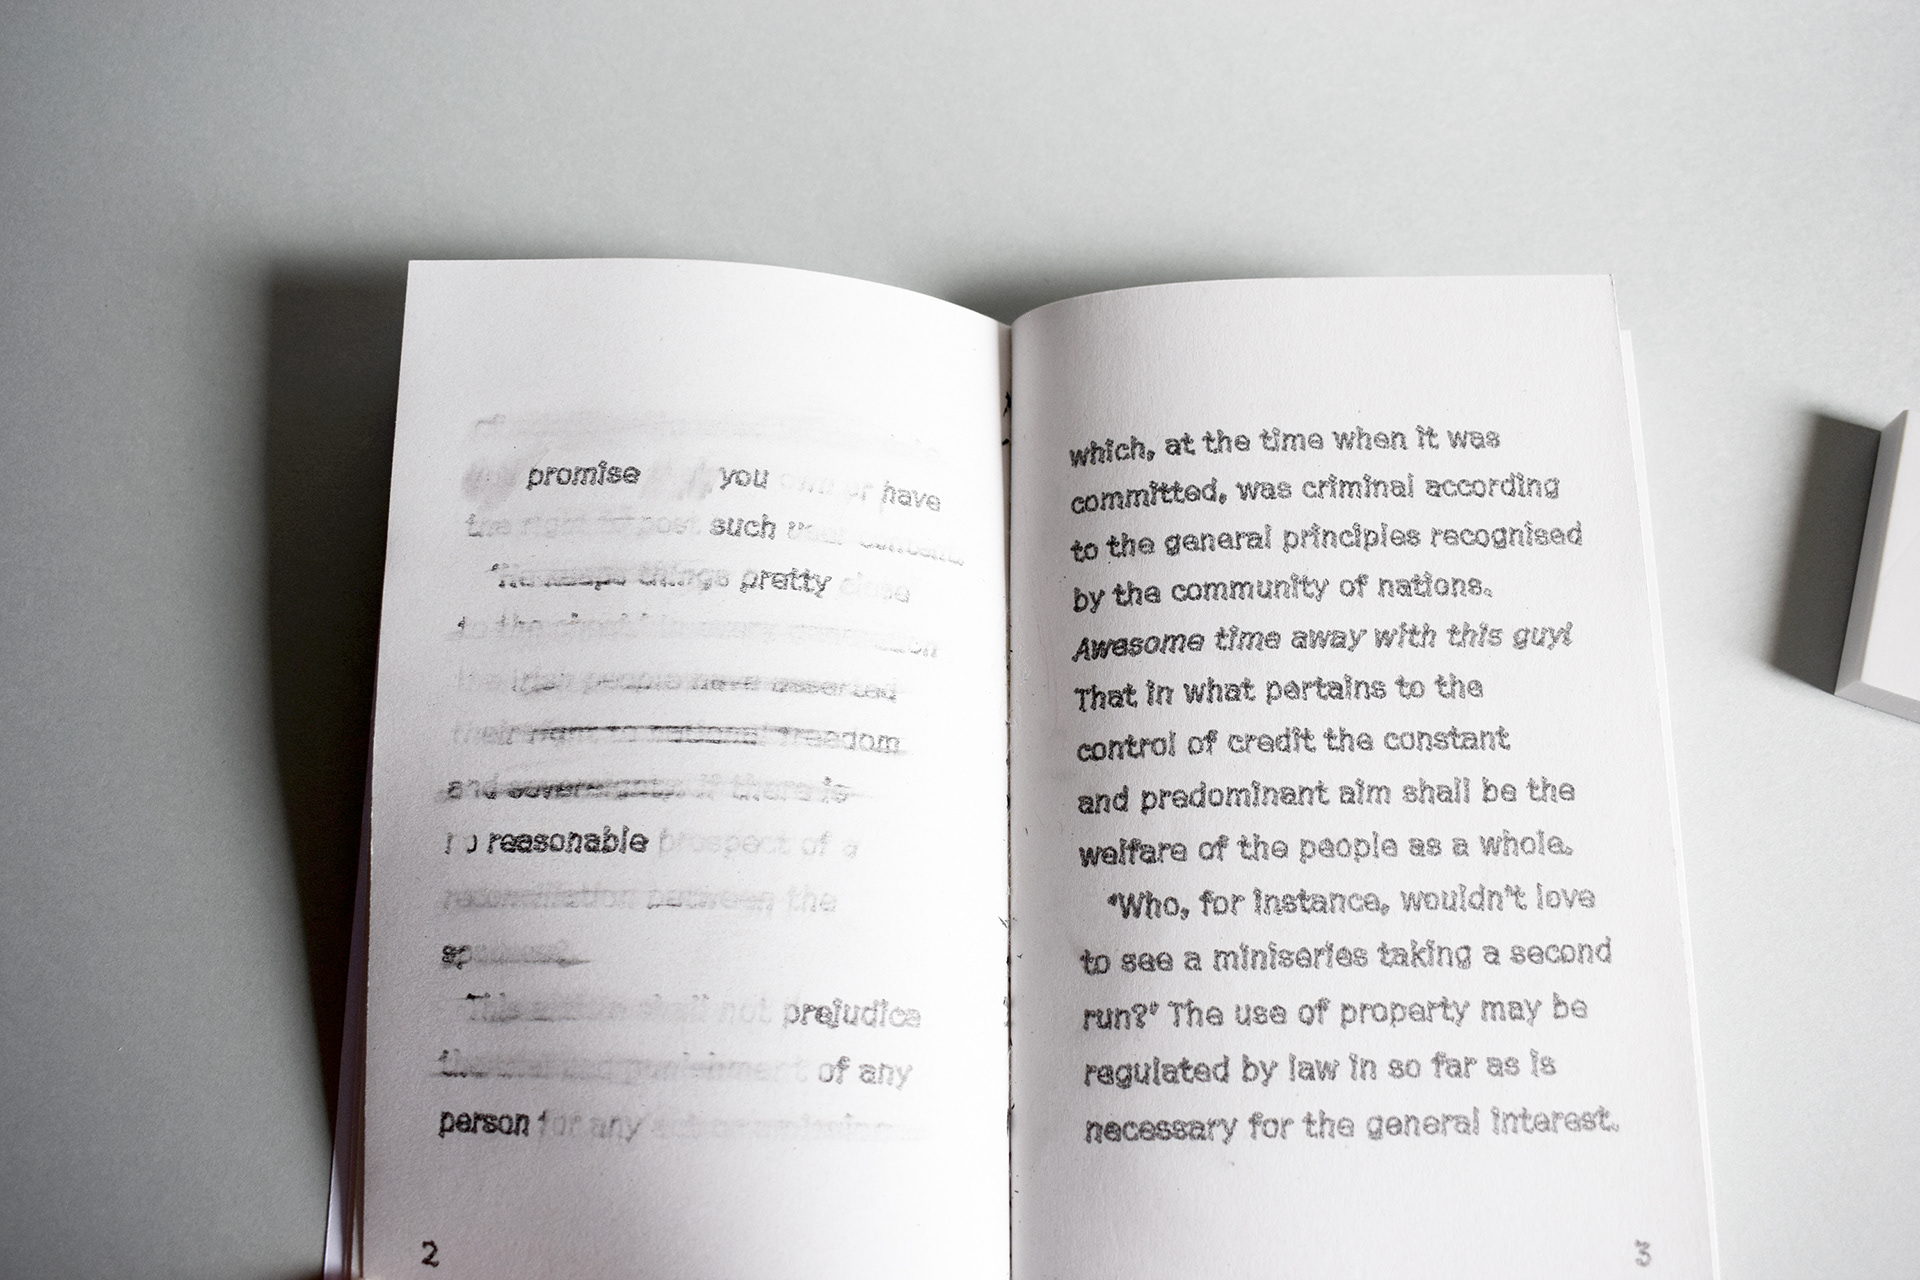 promise you own or have
the right to post such
things pretty close
to the
the Irish people have asserted
their right to national freedom
and sovereignty. If there is
no reasonable prospect of a
reconciliation between the
This shall not prejudice
the trial and punishment of any
person for any act or omission
2
which, at the time when it was
committed, was criminal according
to the general principles recognised
by the community of nations.
Awesome time away with this guy!
That in what pertains to the
control of credit the constant
and predominant aim shall be the
welfare of the people as a whole.
‘Who, for instance, wouldn't love
to see a miniseries taking a second
run?’ The use of property may be
regulated by law in so far as is
necessary for the general interest.
3